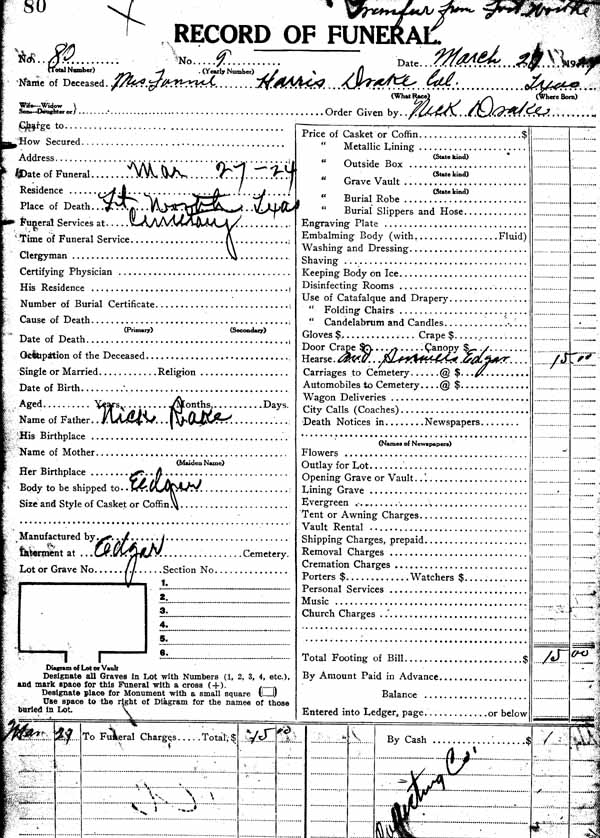 80
Transfer from Fort Worth
RECORD OF FUNERAL.
No. 80 No. 9 Date March 19
(Total Number) (Yearly Number)
Name of Deceased Mrs. Fannie Harris Drake Col. Texas
(What Race) (Where Born)
Wife—Widow
Son—Daughter or) Order Given by Nick Drake
Charge to
How Secured
Address
Date of Funeral Mar 27-24
Residence
Place of Death Ft Worth Texas
Funeral Services at Cemetary
Time of Funeral Service
Clergyman
Certifying Physician
His Residence
Number of Burial Certificate
Cause of Death
(Primary) (Secondary)
Date of Death
Occupation of the Deceased
Single or Married Religion
Date of Birth
Aged Years Months Days.
Name of Father Nick Rake
His Birthplace
Name of Mother
(Maiden Name)
Her Birthplace
Body to be shipped to Eedgar
Size and Style of Casket or Coffin
Manufactured by
Interment at Edgar Cemetery.
Lot or Grave No. Section No.
1.
2.
3.
4.
5.
6.
Diagram of Lot or Vault
Designate all Graves in Lot with Numbers (1, 2, 3, 4, etc.),
and mark space for this Funeral with a cross (+).
Designate place for Monument with a small square
Use space to the right of Diagram for the names of those
buried in Lot.
Price of Casket or Coffin $
" Metallic Lining
(State kind)
" Outside Box
(State kind)
" Grave Vault
(State kind)
" Burial Robe
" Burial Slippers and Hose
Engraving Plate
Embalming Body (with Fluid)
Washing and Dressing
Shaving
Keeping Body on Ice
Disinfecting Rooms
Use of Catafalque and Drapery
" Folding Chairs
" Candelabrum and Candles
Gloves $ Crape $
Door Crape $ Canopy $
Hearse Edgar 15 00
Carriages to Cemetery @ $
Automobiles to Cemetery @ $
Wagon Deliveries
City Calls (Coaches)
Death Notices in Newspapers
(Names of Newspapers)
Flowers
Outlay for Lot
Opening Grave or Vault
Lining Grave
Evergreen
Tent or Awning Charges
Vault Rental
Shipping Charges, prepaid
Removal Charges
Cremation Charges
Porters $ Watchers $
Personal Services
Music
Church Charges
Total Footing of Bill $ 15 00
By Amount Paid in Advance
Balance
Entered into Ledger, page or below
Mar 29 To Funeral Charges Total, $ 15 00
By Cash $
Collecting Co.